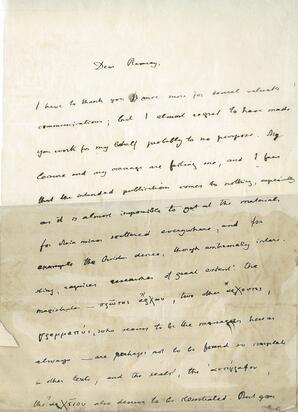 Dear Ramsay.
I have to thank you once more for several valuable
communications; but I almost regret to have made
you work for my behalf probably to no purpose. My
leisure and my courage are failing me, and I fear
that the intended publication comes to nothing, especially
as it is almost impossible to get at the material,
for Asia minor scattered everywhere, and for
example the decree, though extremely intere-
sting, requires researches of great extent: the
magistrate — πρῶτος ἄρχων, two other ἄρχοντες,
γραμματεύς, who seems to be the manager here as
always — are perhaps not to be found so complete
in other texts; and the seals, the ἀντίγραφον,
the ἀρχεῖον also deserve to be illustrated. But you